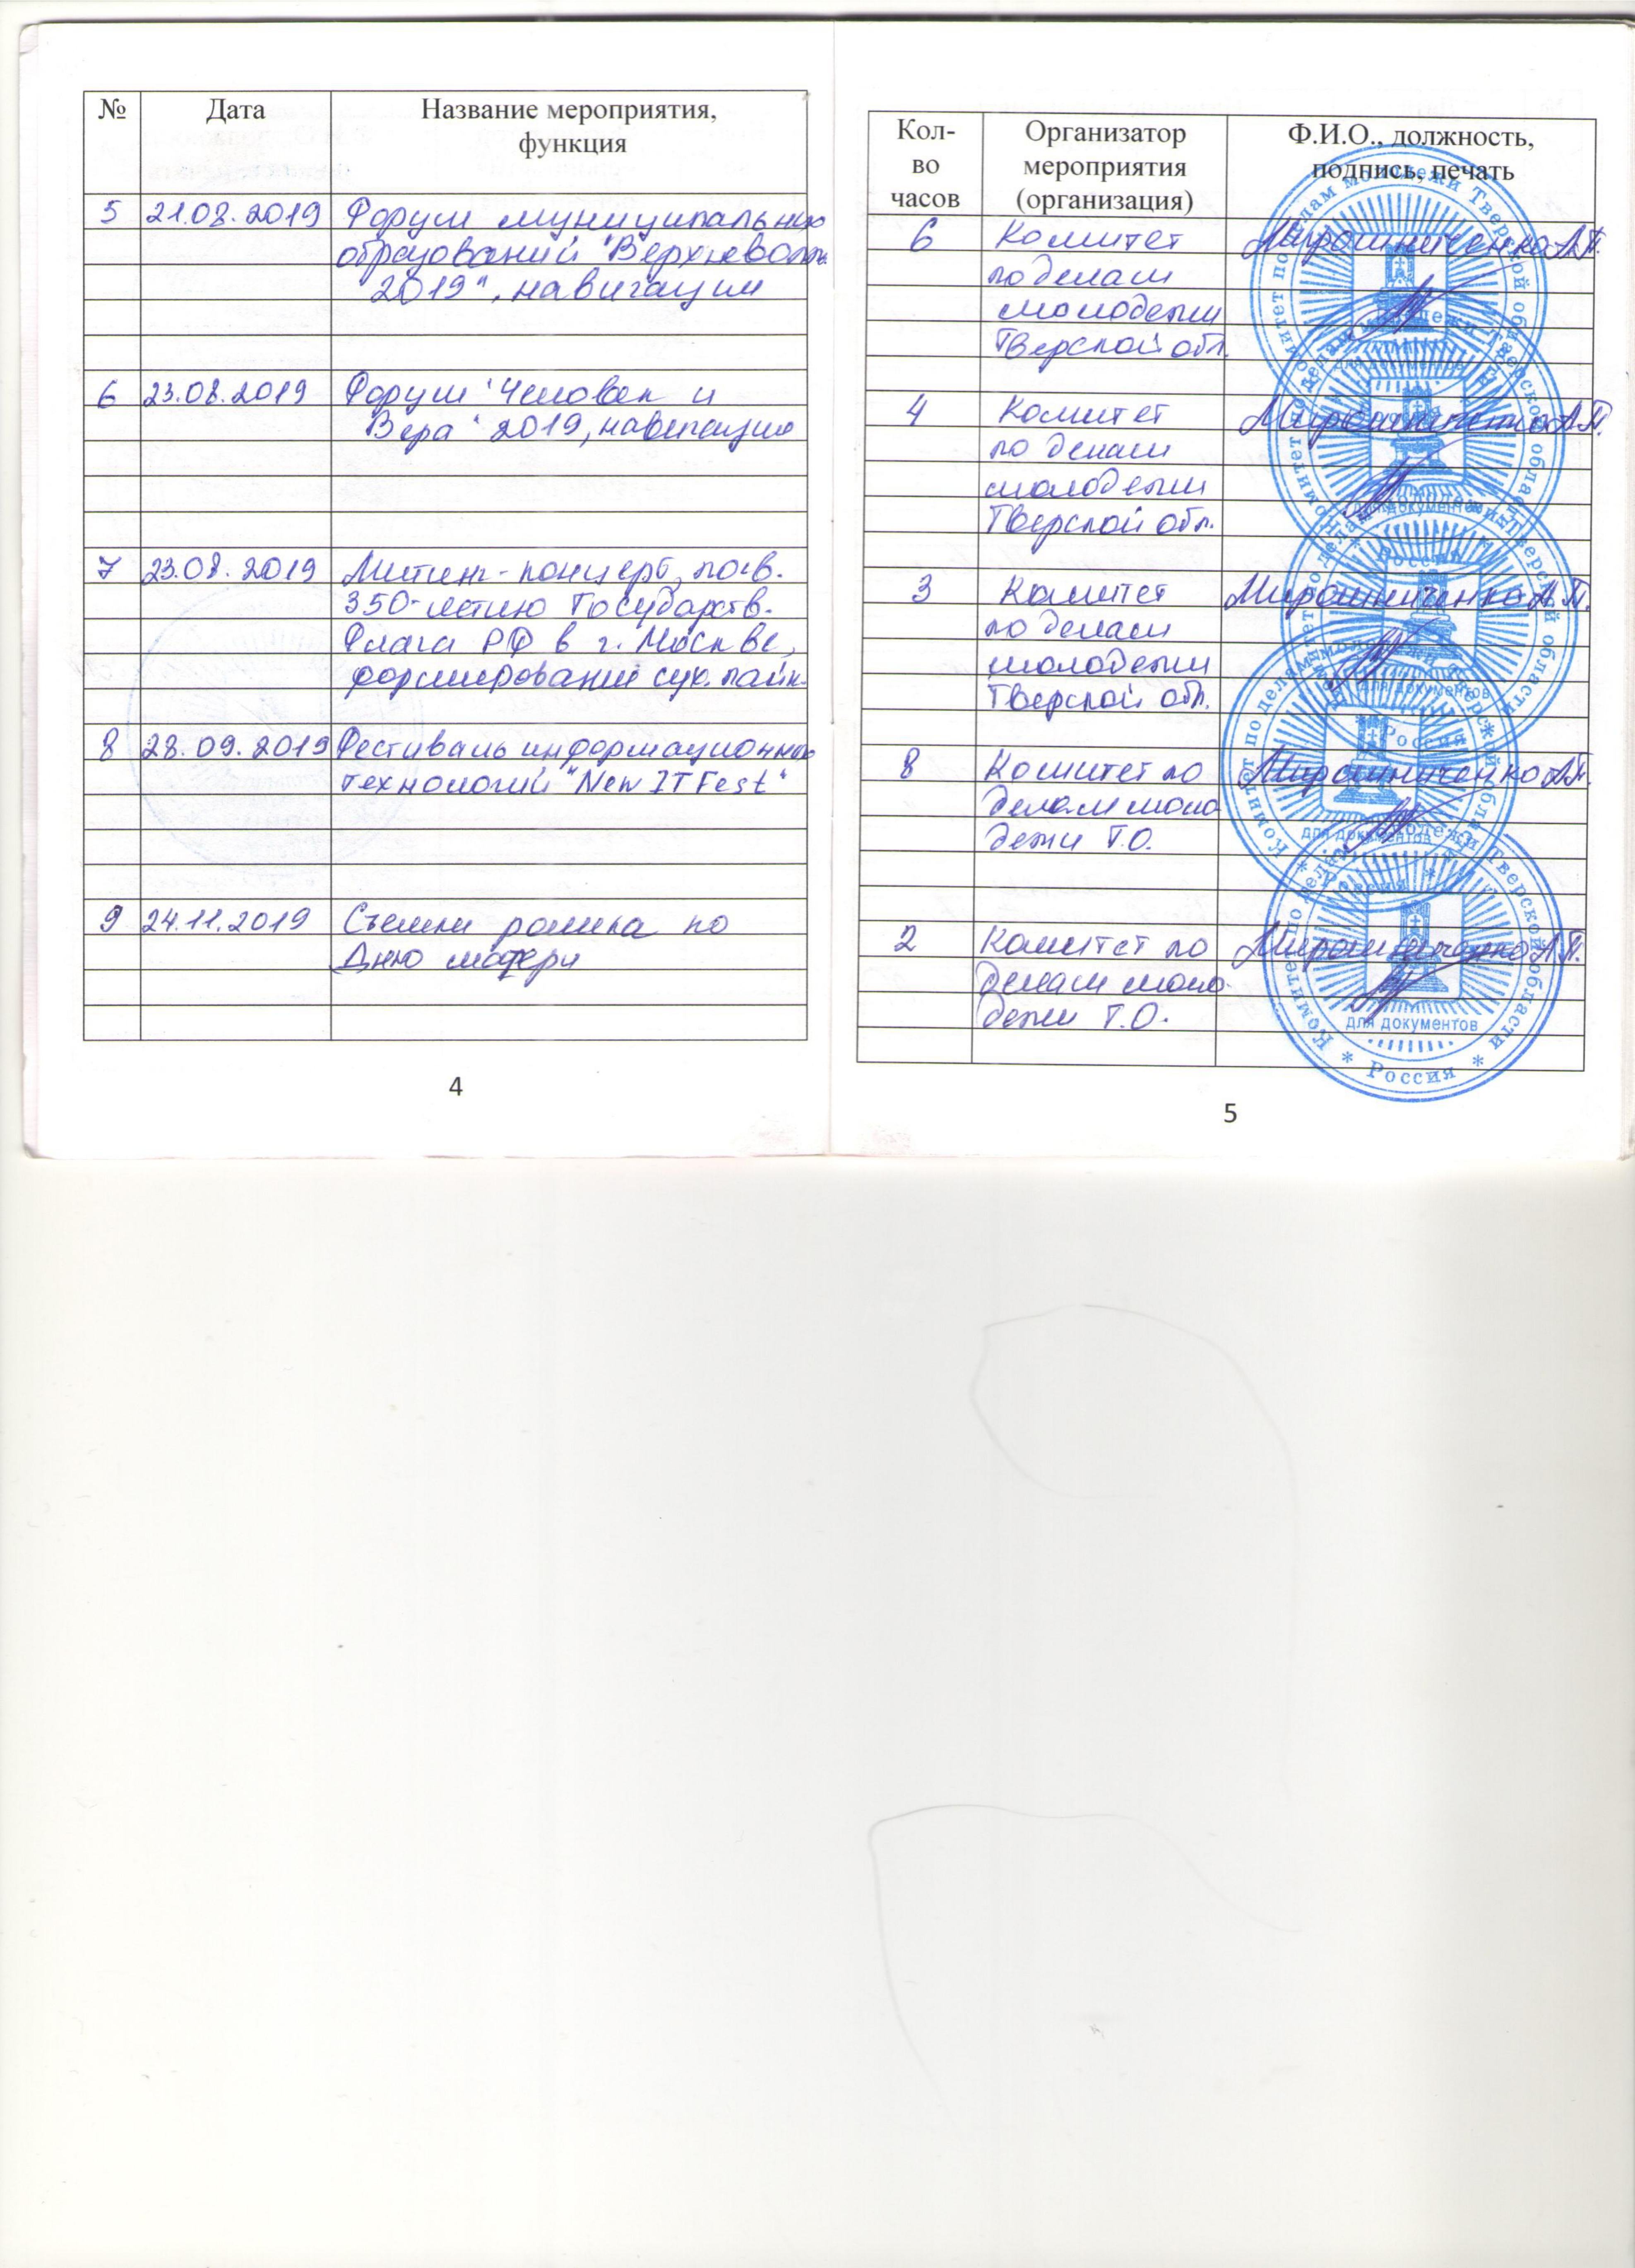 № Дата Название мероприятия,
функция
5 21.08.2019 Форум муниципальных
образований "Верхневолж.
2019", навигация
6 23.08.2019 Форум "Человек и
Вера" 2019, навигация
7 23.08.2019 Митинг-концерт, посв.
350-летию Государств.
Флага РФ в г. Москве,
формирование сух. пайк.
8 28.09.2019 Фестиваль информационных
технологий "New IT Fest"
9 24.11.2019 Съемки ролика ко
Дню матери
4
Кол- Организатор Ф.И.О., должность,
во мероприятия подпись, печать
часов (организация)
6 Комитет Мирошниченко А.П.
по делам
молодежи
Тверской обл.
4 Комитет Мирошниченко А.П.
по делам
молодежи
Тверской обл.
3 Комитет Мирошниченко А.П.
по делам
молодежи
Тверской обл.
8 Комитет по Мирошниченко А.П.
делам моло
дежи Т.О.
2 Комитет по Мирошниченко А.П.
делам моло-
дежи Т.О.
Комитет по делам молодежи Тверской области
для документов
* Россия *
5